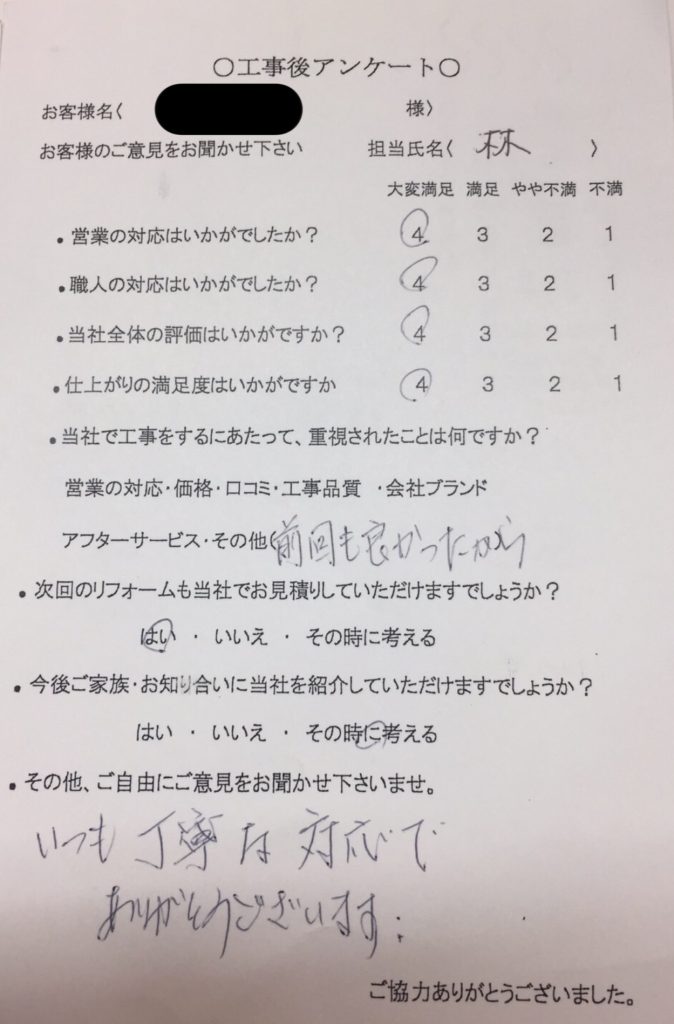 〇工事後アンケート〇
お客様名〈 様〉
お客様のご意見をお聞かせ下さい 担当氏名〈 林 〉
大変満足 満足 やや不満 不満
・営業の対応はいかがでしたか？ 4 3 2 1
・職人の対応はいかがでしたか？ 4 3 2 1
・当社全体の評価はいかがですか？ 4 3 2 1
・仕上がりの満足度はいかがですか 4 3 2 1
・当社で工事をするにあたって、重視されたことは何ですか？
営業の対応・価格・口コミ・工事品質 ・会社ブランド
アフターサービス・その他( 前回も良かったから
・次回のリフォームも当社でお見積りしていただけますでしょうか？
はい ・ いいえ ・ その時に考える
・今後ご家族・お知り合いに当社を紹介していただけますでしょうか？
はい ・ いいえ ・ その時に考える
・その他、ご自由にご意見をお聞かせ下さいませ。
いつも丁寧な対応で
ありがとうございます.
ご協力ありがとうございました。